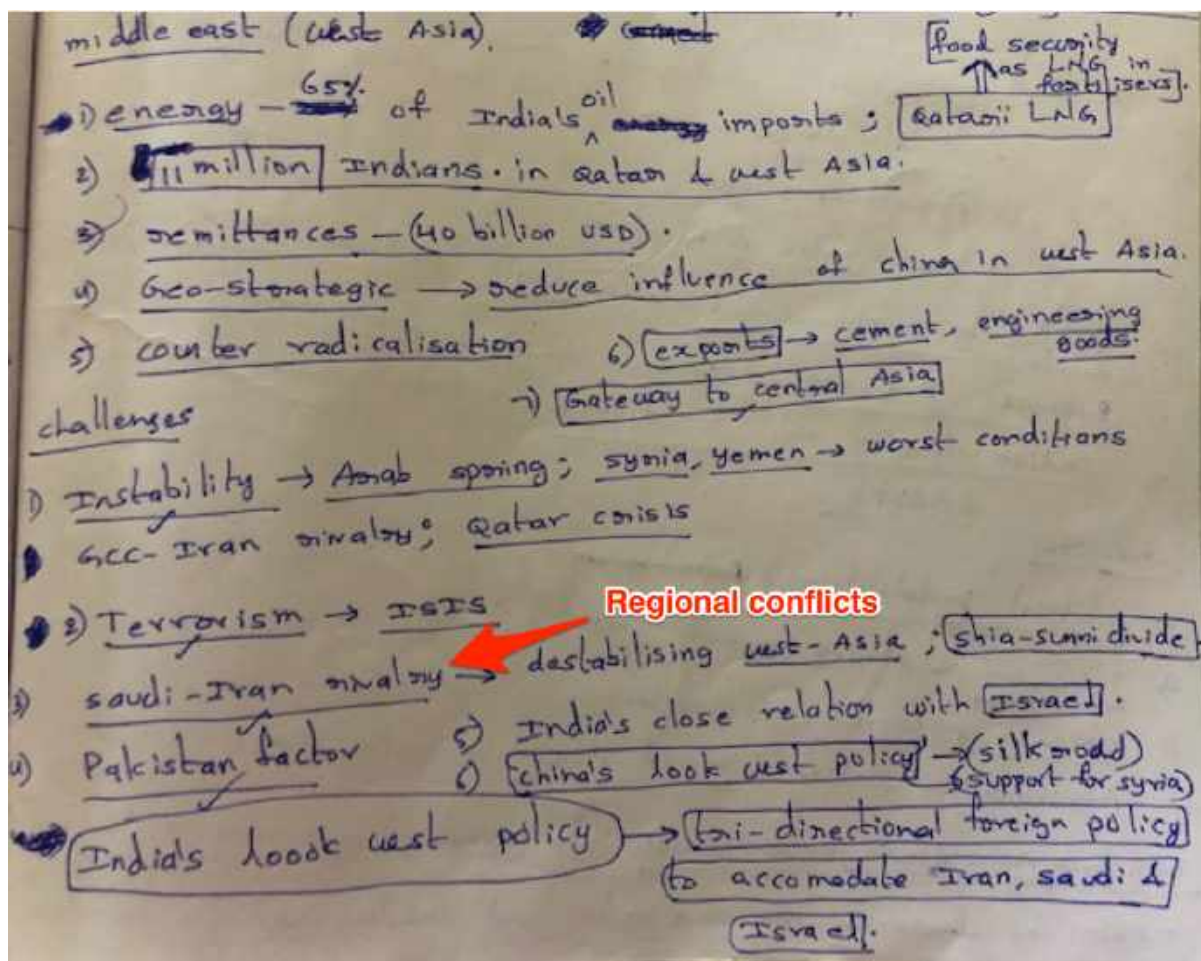 middle east (West Asia).
food security
as LNG in
fertilisers].
1) energy - 65% of India's oil imports ; Qatari LNG
2) 11 million Indians. in Qatar & West Asia.
3) remittances - (40 billion USD).
4) Geo-strategic → reduce influence of china in west Asia.
5) counter radicalisation
6) exports → cement, engineering goods.
7) Gateway to central Asia
challenges
1) Instability → Arab spring; syria, yemen → worst conditions
GCC- Iran rivalry; Qatar crisis
2) Terrorism → ISIS
Regional conflicts
3) saudi-Iran rivalry → destabilising west-Asia ; shia-sunni divide.
4) Pakistan factor
5) India's close relation with Israel.
6) china's look west policy → (silk road)
(support for syria)
India's loook west policy → tri-directional foreign policy
to accomodate Iran, saudi &
Israel.